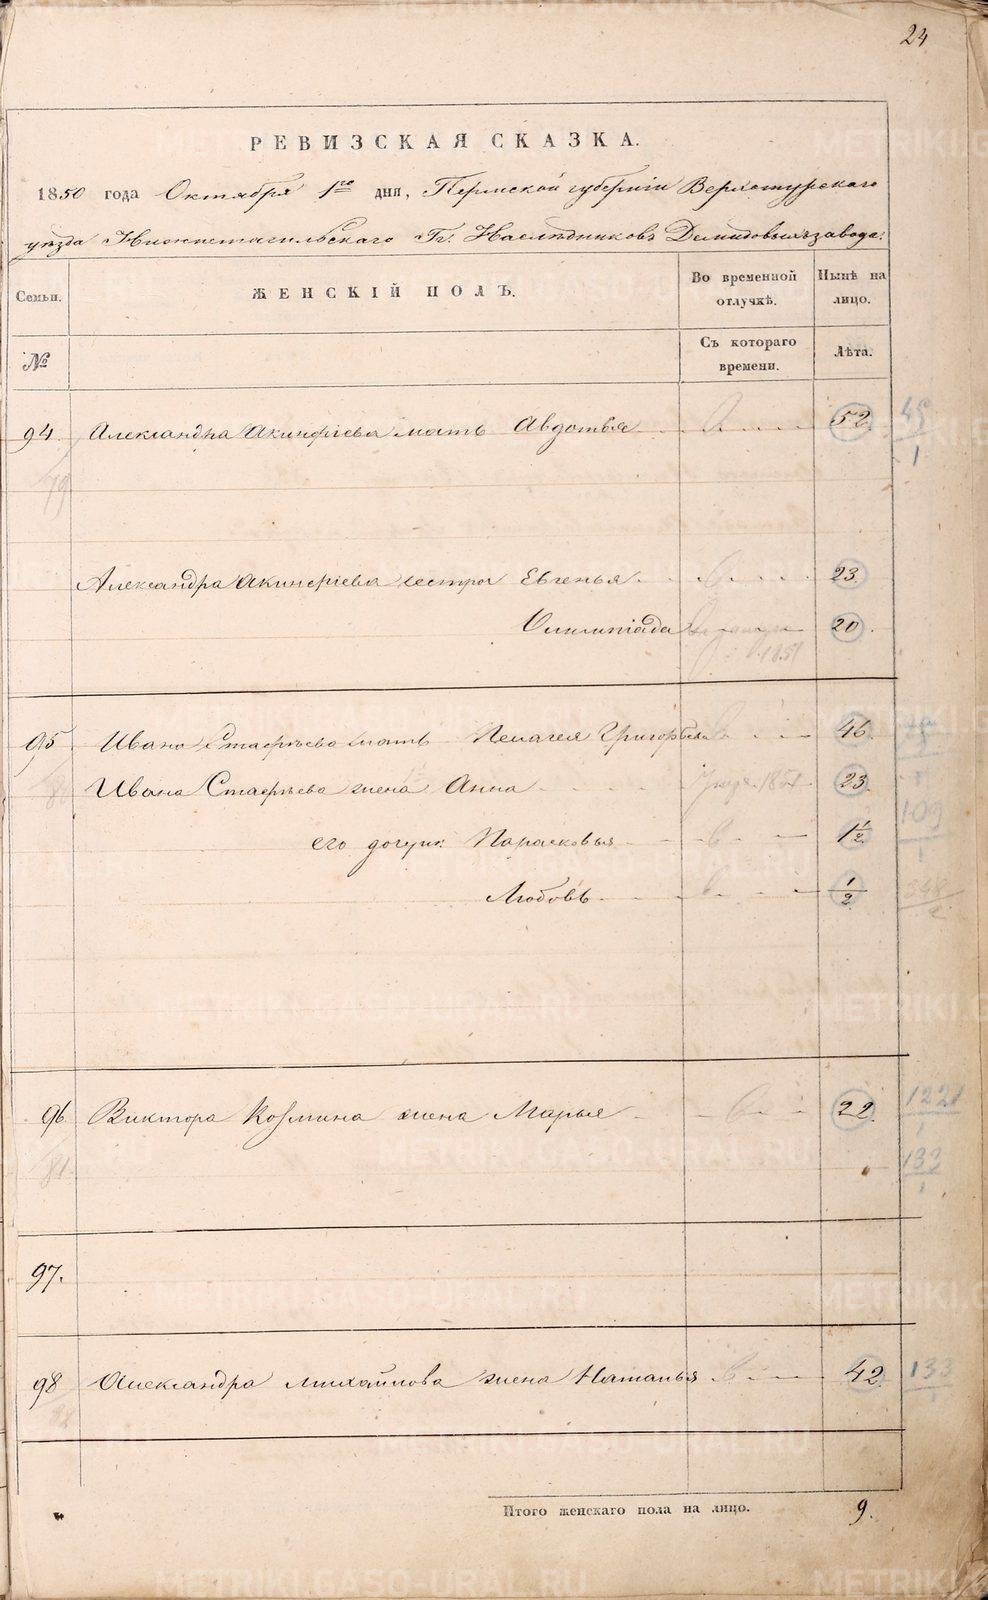 24
РЕВИЗСКАЯ СКАЗКА.
1850 года Октября 1го дня, Пермской губернии Верхотурскаго
уѣзда Нижнетагильскаго Гг. Наслѣдниковъ Демидовыхъ завода.
Семьи. ЖЕНСКІЙ ПОЛЪ. Во временной отлучкѣ. Нынѣ на лицо.
№ Съ котораго времени. Лѣта.
94. Александра Акинфіева мать Авдотья 52. 45/1
79
Александра Акинфіева сестры Евгенья 23.
Олимпіада 20.
1851
95 Ивана Стафѣева мать Пелагея Григорьева 46
80 Ивана Стафѣева жена Анна 1851 23. 109/1
его дочери Парасковья 1½
Любовь ½ 348/2
96 Виктора Козмина жена Марья 22. 1221/1
81 133/1
97.
98 Александра Михайлова жена Наталья 42 133/1
82
Итого женскаго пола на лицо. 9.
METRIKI.GASO-URAL.RU